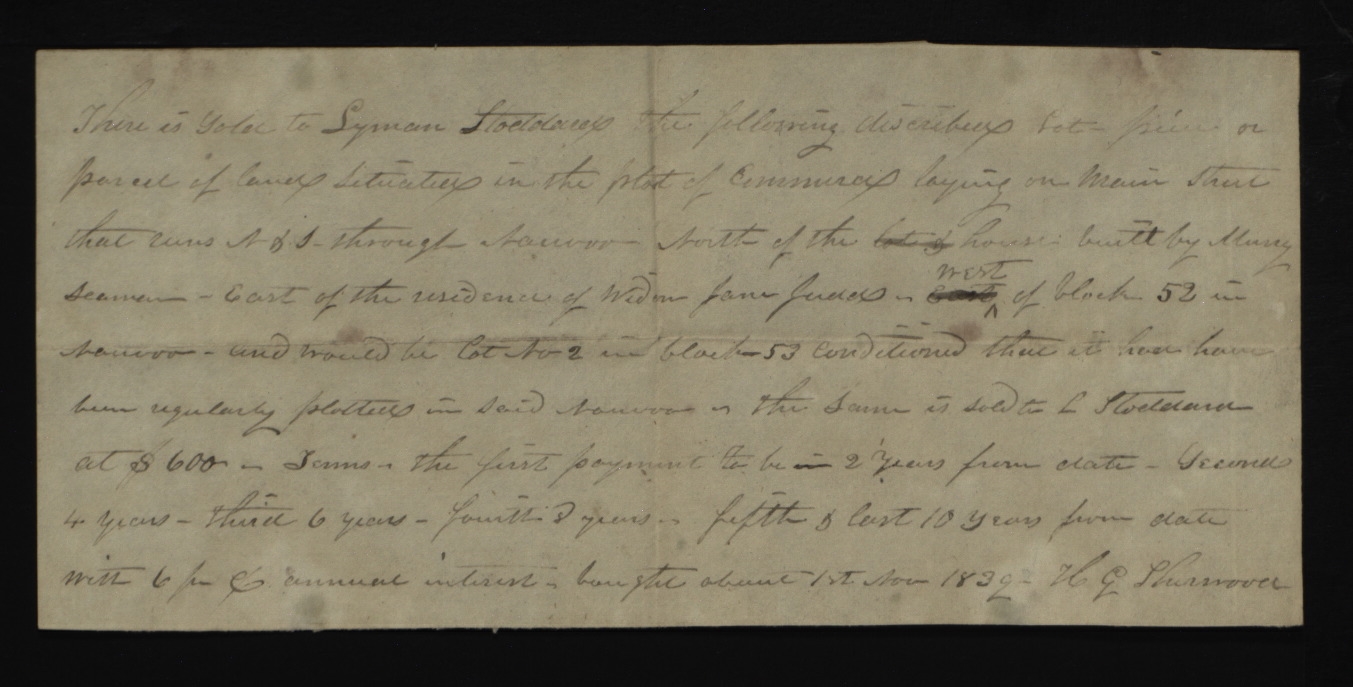 There is Sold to Lyman Stoddard the following discribed Lot - piece or
parcel of land Situated in the plot of Commerce laying on Main Street
that runs N & S - through Nauvoo - North of the lot & house built by Murry
Seaman - East of the residence of Widow Jane Judd - East west of block 52 in
Nauvoo - and would be Lot No 2 in block - 53 conditioned that it had have
been regularly plotted in said Nauvoo - the Same is sold to L Stoddard
at $ 600 - Terms - the first payment to be in 2 years from date - Second
4 years - third 6 years - fourth 8 years - fifth & last 10 years from date
with 6 pr ct annual interest - bought about 1st Nov 1839 - H G Sherwood